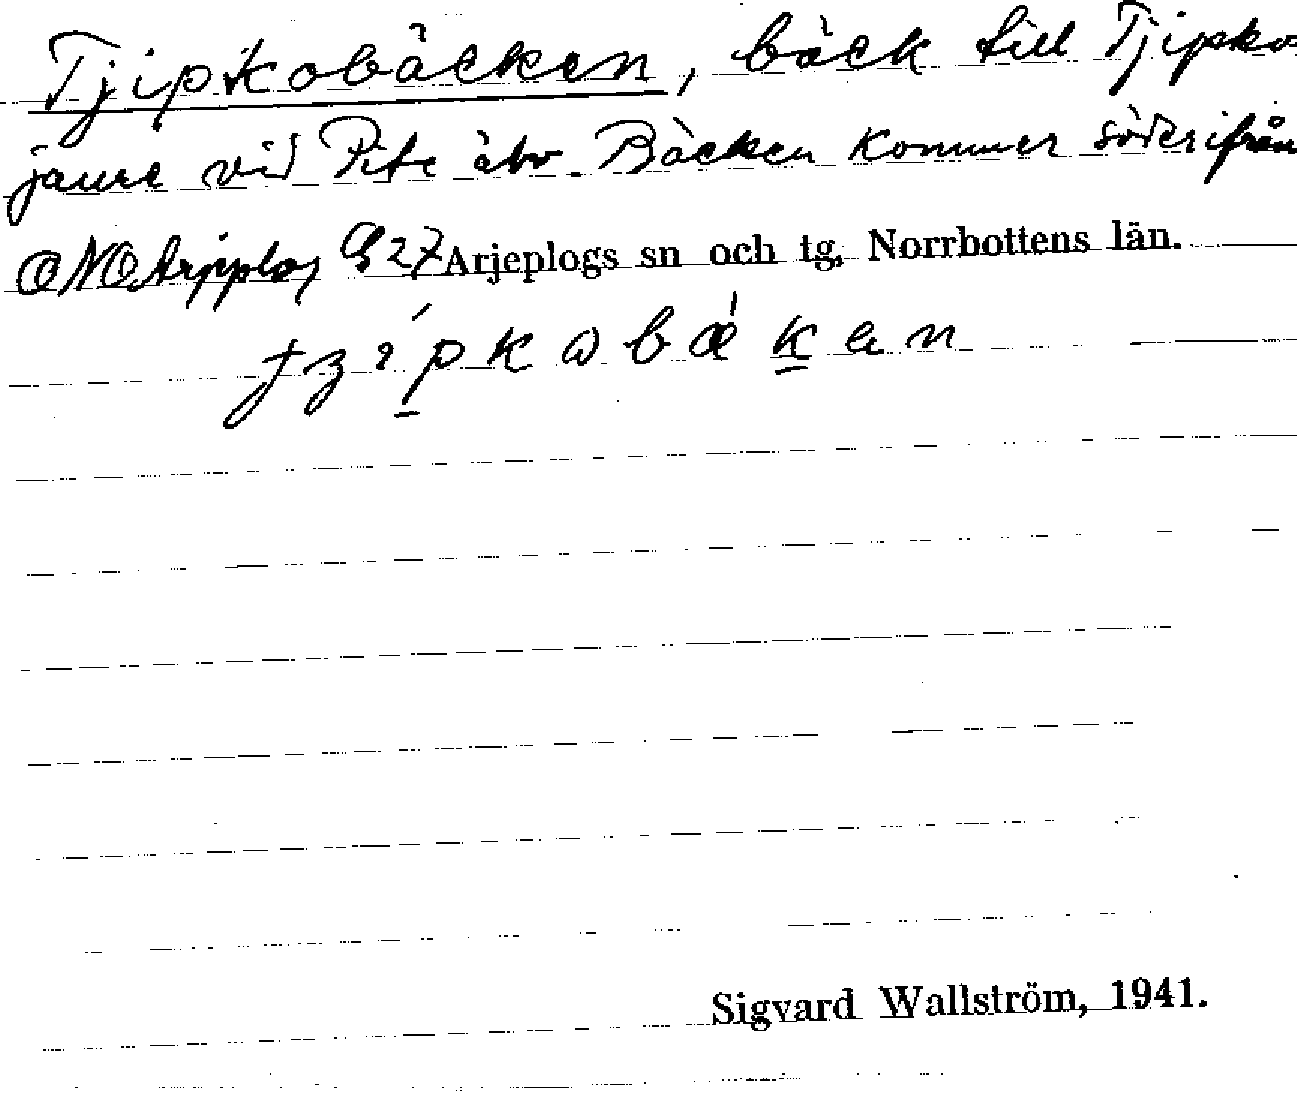 Tjipkobäcken, bäck till Tjipko
jaure vid Pite älv. Bäcken kommer söderifrån
ONO Arjeplog G 27 Arjeplogs sn och tg, Norrbottens län.
Sigvard Wallström, 1941.